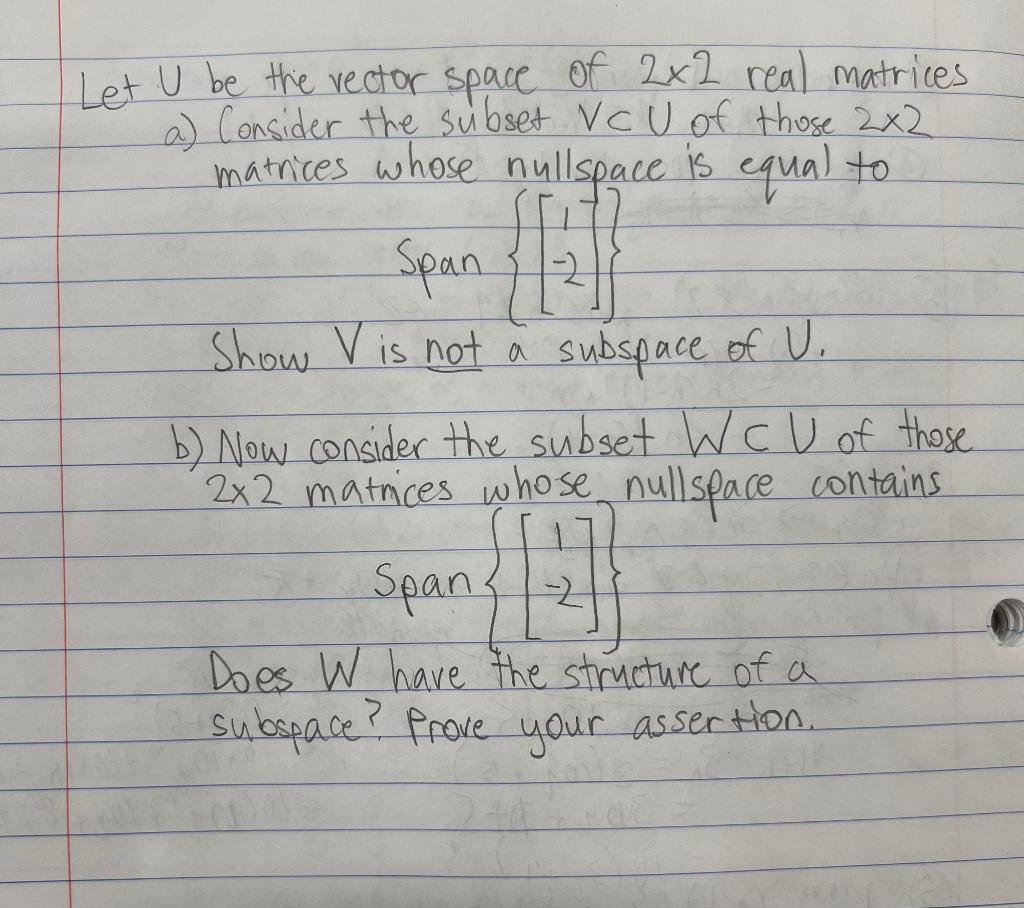 Let U be the vector space of 2x2 real matrices
a) Consider the subset V⊂U of those 2x2
matrices whose nullspace is equal to
Span {[1 -2]}
Show V is not a subspace of U.
b) Now consider the subset W⊂U of those
2x2 matrices whose nullspace contains
Span {[1 -2]}
Does W have the structure of a
subspace? Prove your assertion.